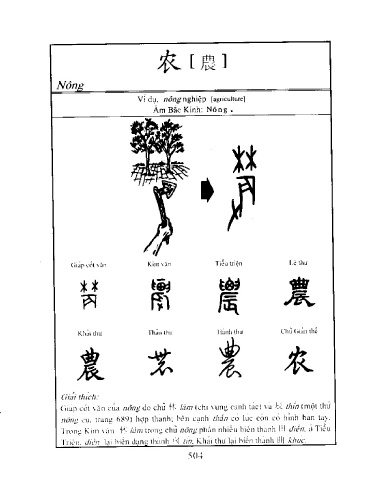 农 [ 農 ]
Nông
Ví dụ, nông nghiệp [agriculture]
Âm Bắc Kinh: Nóng .
Giáp cốt văn Kim văn Tiểu triện Lệ thư
Khải thư Thảo thư Hành thư Chữ Giản thể
農 农
Giải thích:
Giáp cốt văn của nông do chữ 林 lâm (chỉ vùng canh tác) và 辰 thìn (một thứ
nông cụ, trang 689) hợp thành; bên cạnh thần có lúc còn có hình bàn tay.
Trong Kim văn 林 lâm trong chữ nông phần nhiều biến thành 田 điền, ở Tiểu
Triện, điền lại biến dạng thành 囟 tín, Khải thư lại biến thành 曲 khúc.
504